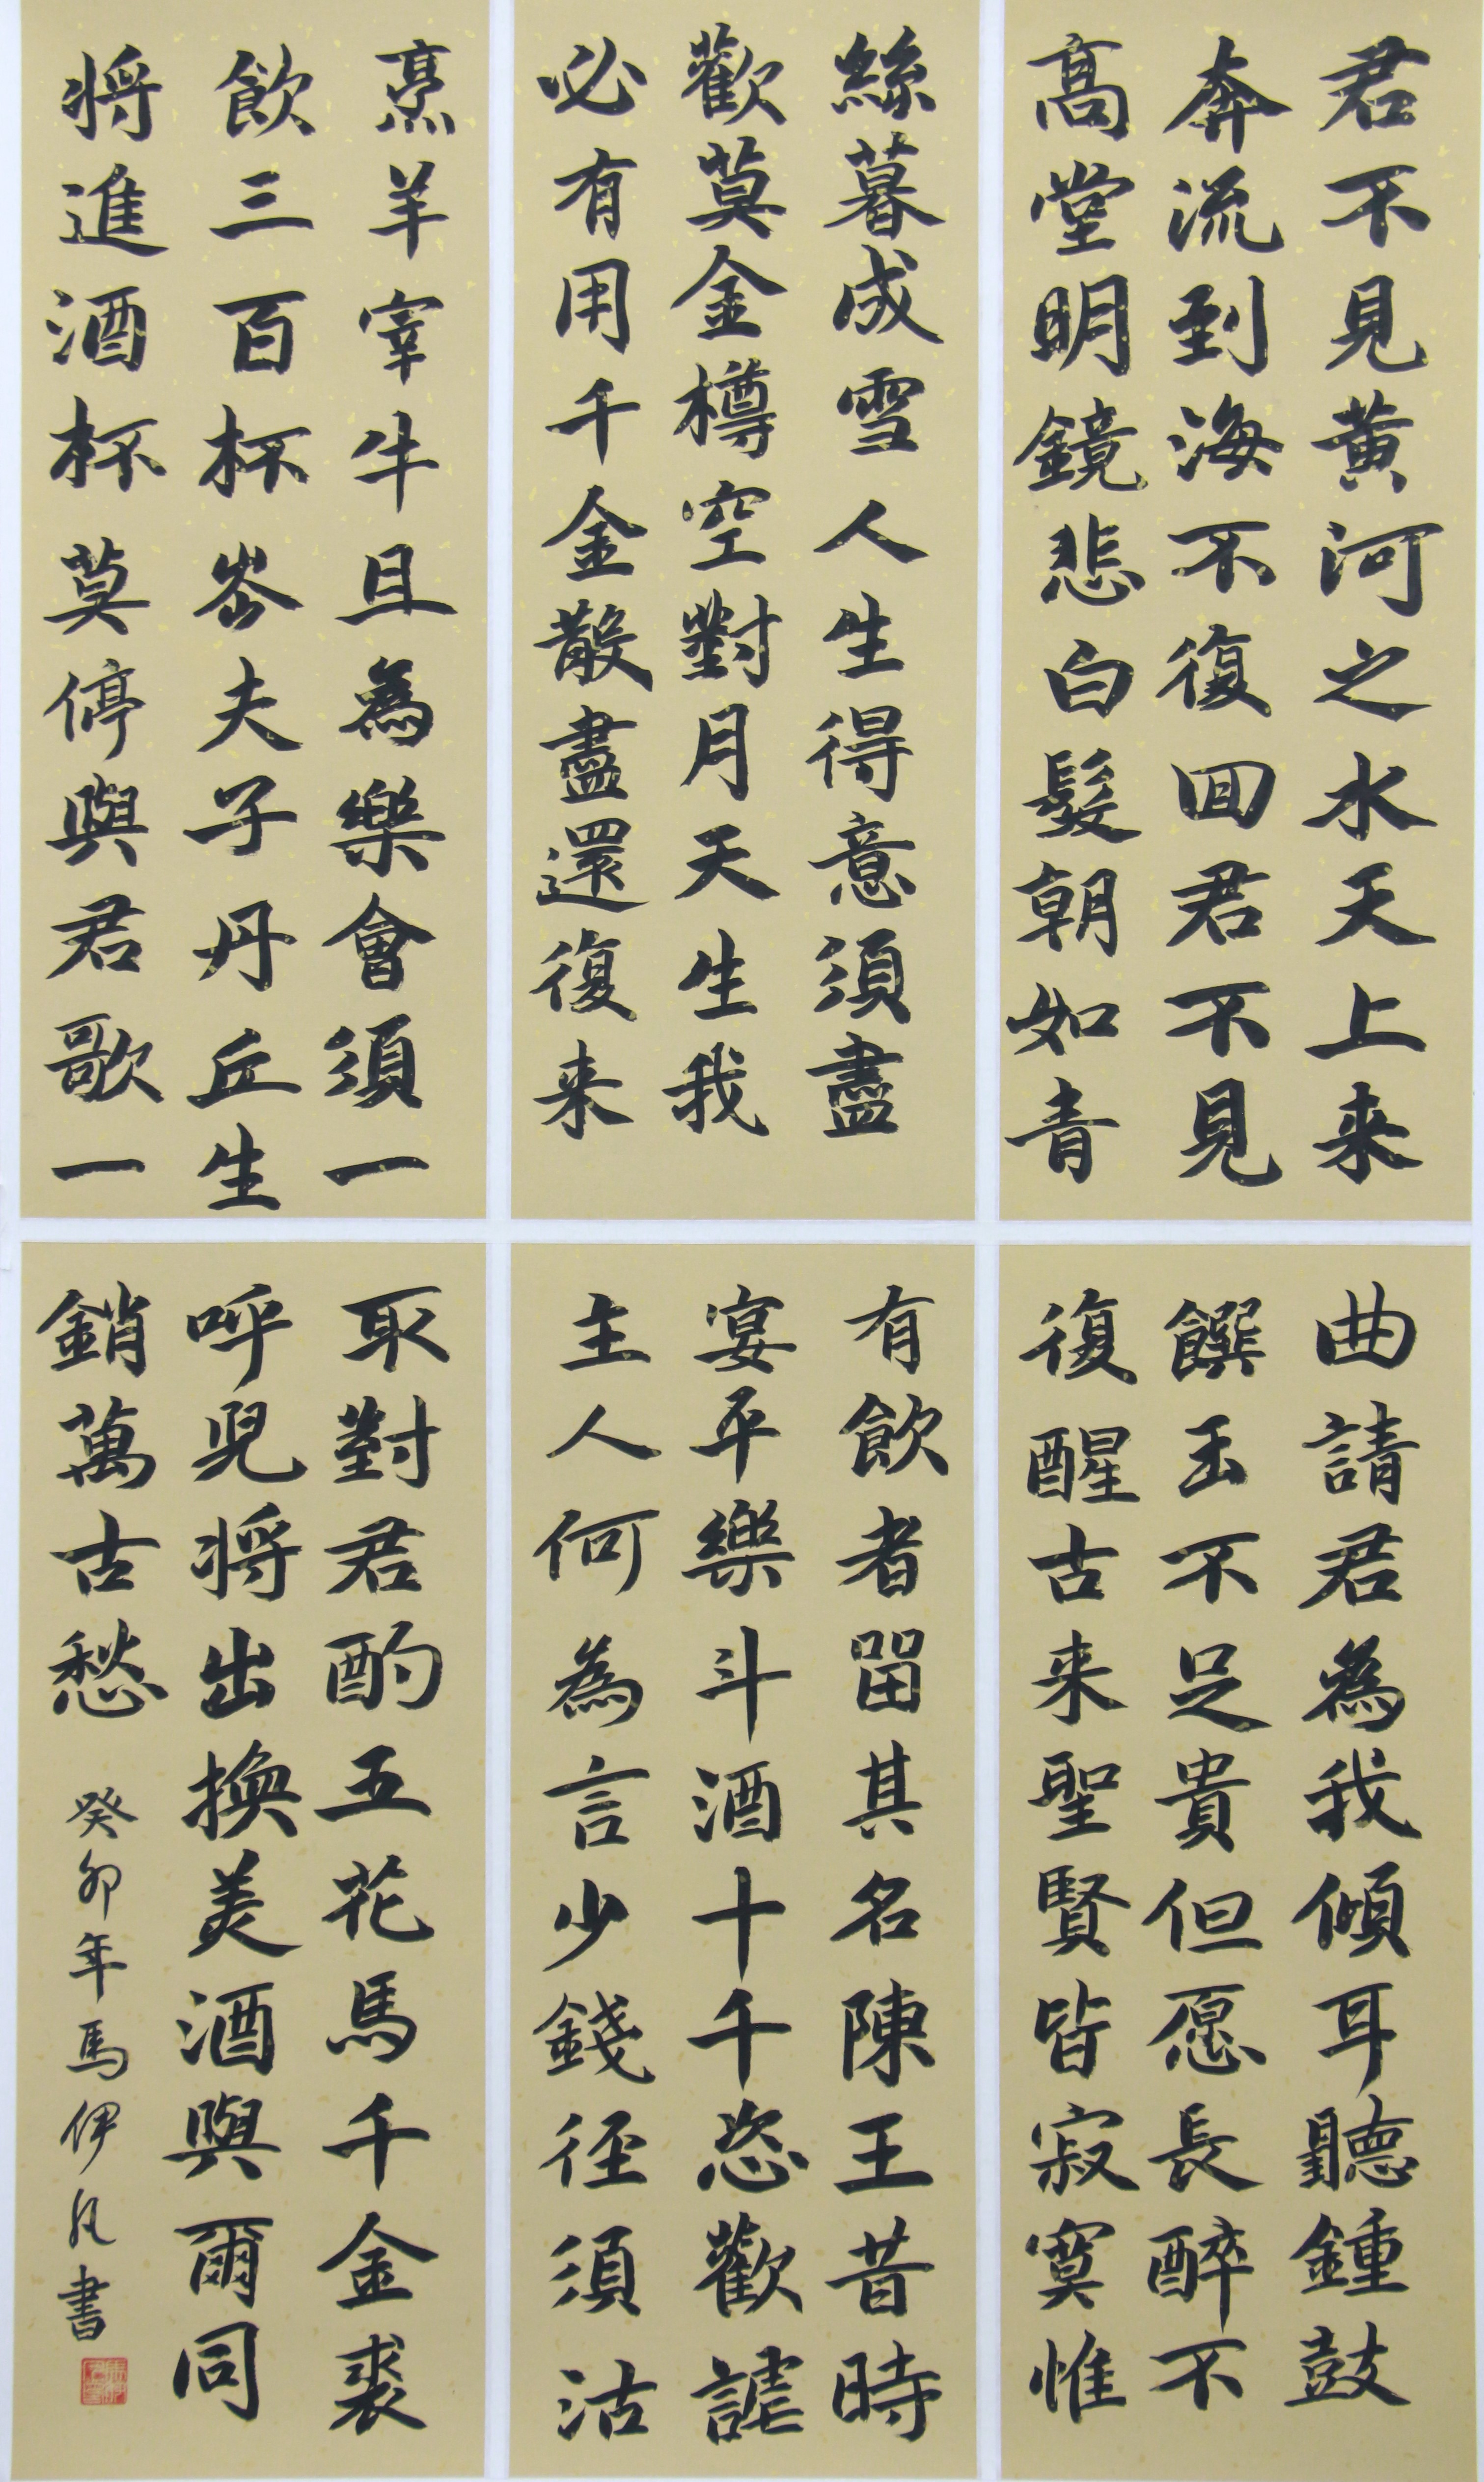 君不見黃河之水天上来
奔流到海不復回君不見
高堂明鏡悲白髮朝如青
絲暮成雪人生得意須盡
歡莫金樽空對月天生我
必有用千金散盡還復来
烹羊宰牛且為樂會須一
飲三百杯岑夫子丹丘生
将進酒杯莫停與君歌一
曲請君為我傾耳聽鍾鼓
饌玉不足貴但愿長醉不
復醒古来聖賢皆寂寞惟
有飲者留其名陳王昔時
宴平樂斗酒十千恣歡謔
主人何為言少錢径須沽
取對君酌五花馬千金裘
呼兒将出換美酒與爾同
銷萬古愁
癸卯年馬伊凡書